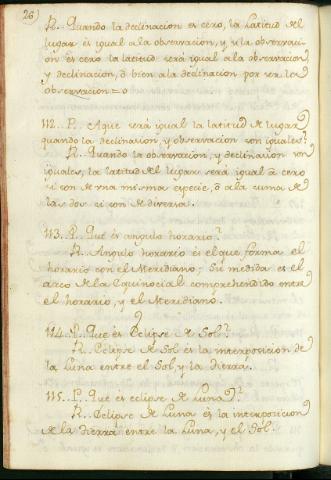 26
R. Quando la declinacion es cero, la Latitud del
lugar es igual a la observacion, y si la observaci-
on es cero la latitud será igual a la observacion
y declinacion, ó bien a la declinacion por ser la
observacion = 0
112. P. Aque será igual la latitud de lugar
quando la declinacion, y observacion son iguales?
R. Quando la observacion, y declinacion son
iguales, la latitud del lugar será igual a cero
si son de una misma especie, ó a la suma de
las dos si son de diversa.
113. P. Qué és angulo horario?
R. Angulo horario és el que forma el
horario con el Meridiano; Su medida es el
arco de la Equinocial comprehendido entre
el horario, y el Meridiano.
114. P. Que és Eclipse de Sol?
R. Eclipse de Sol és la interposicion de
la Luna entre el Sol, y la tierra.
115. P. Que és eclipse de Luna?
R. Eclipse de Luna és la interposicion
de la tierra entre la Luna, y el Sol.